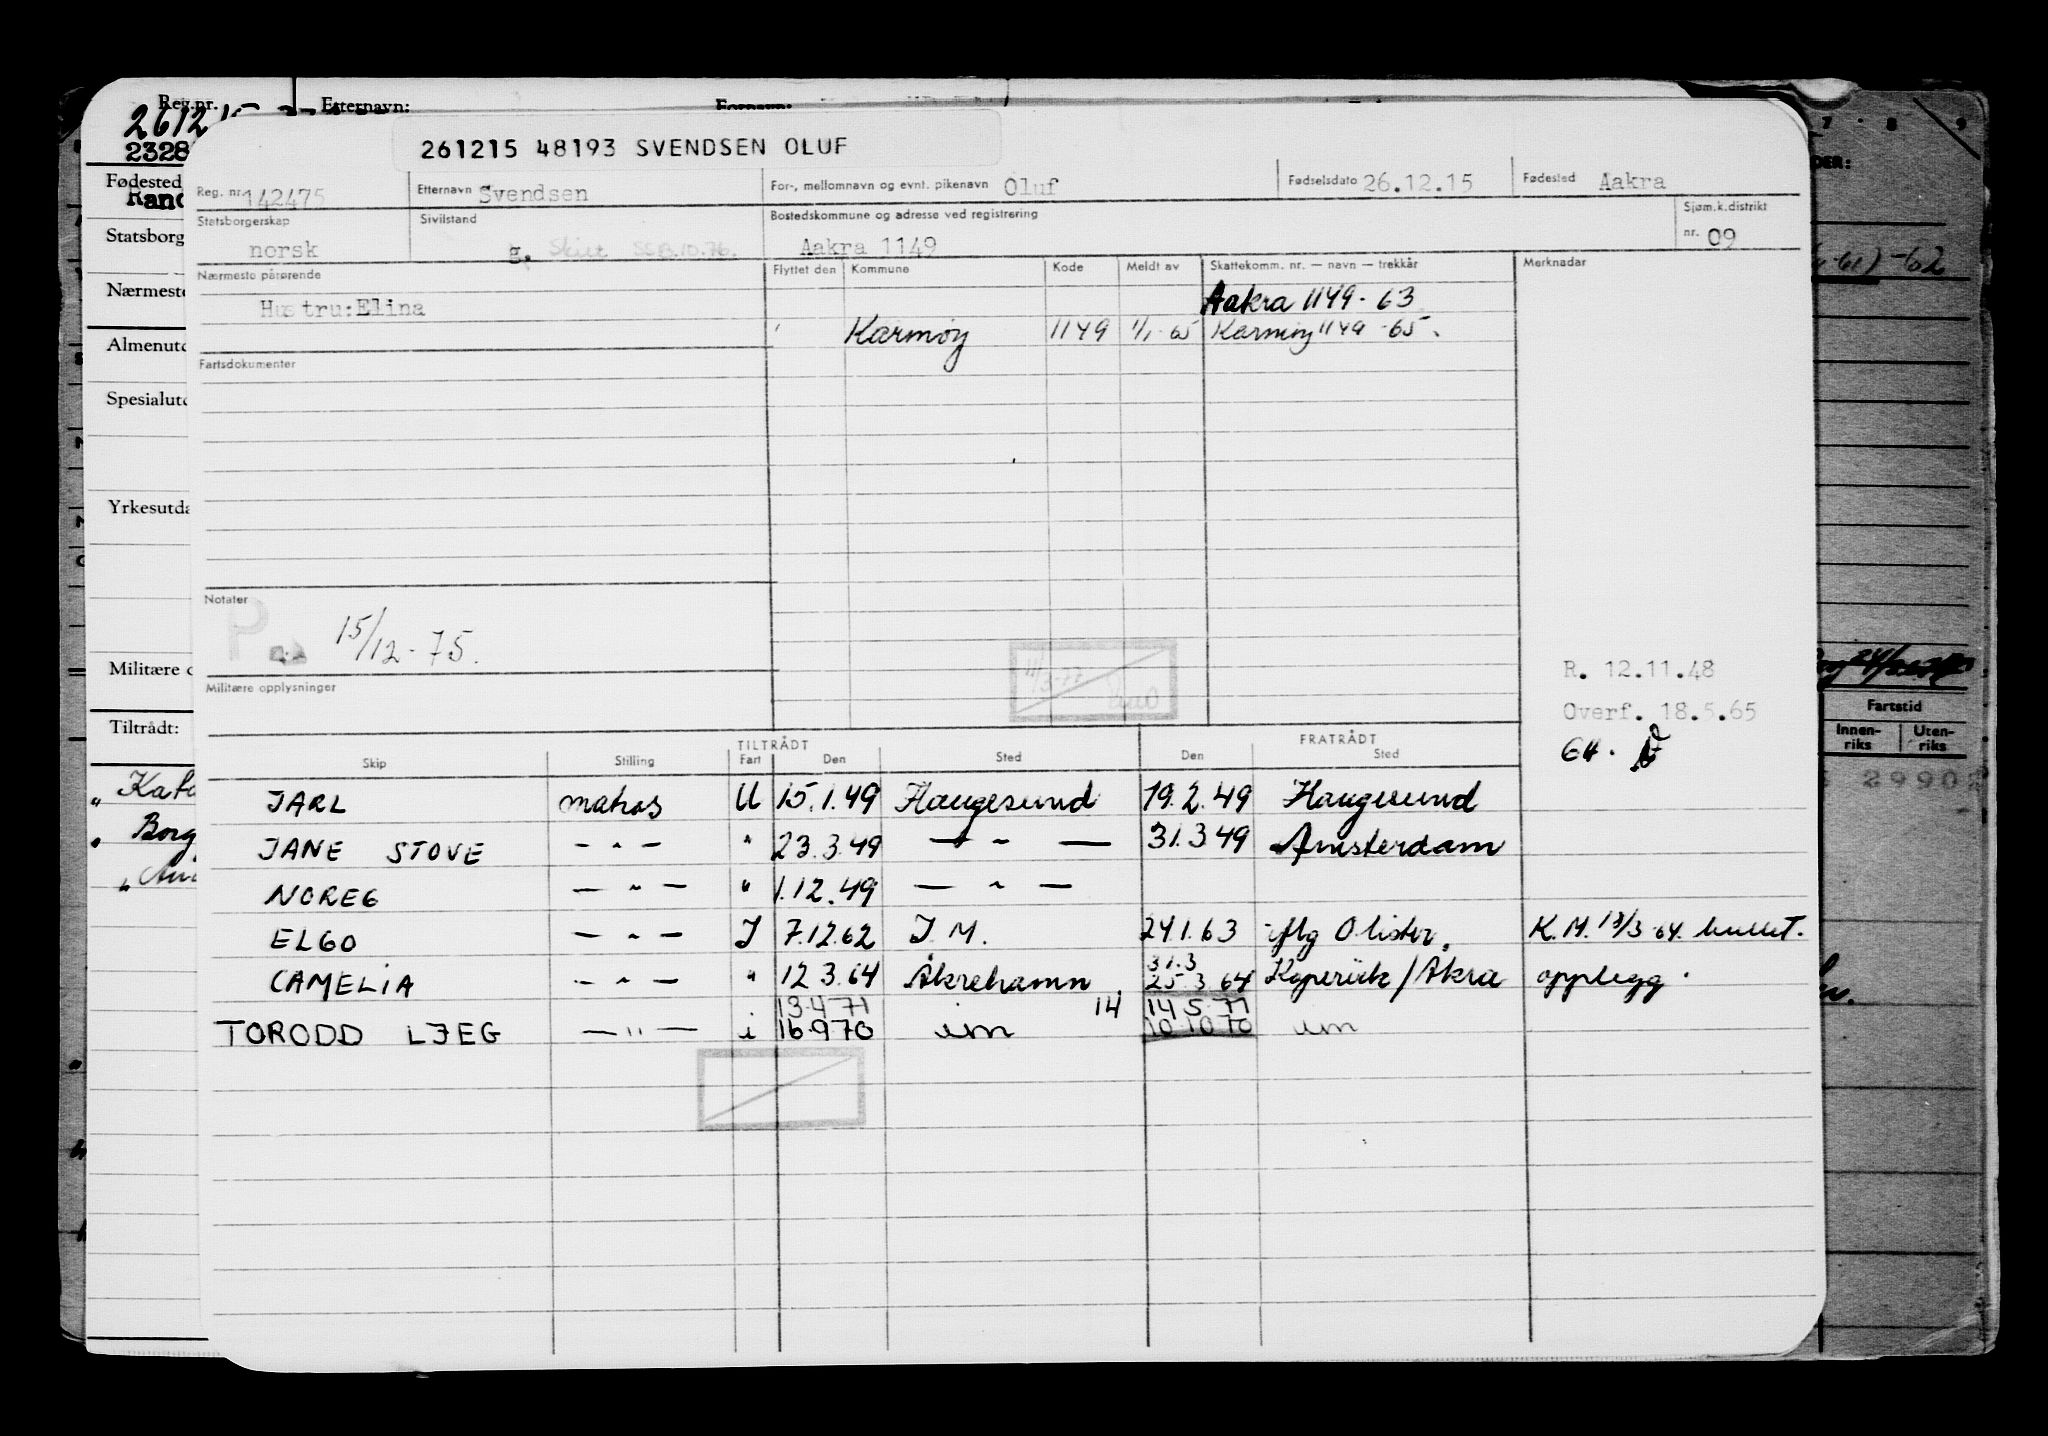 Reg.nr. Etternavn:
261215 48193 SVENDSEN OLUF
2328
Reg. nr. 142475 Etternavn Svendsen For-, mellomnavn og evnt. pikenavn Oluf Fødselsdato 26.12.15 Fødested Aakra
Statsborgerskap norsk Sivilstand g. Bostedskommune og adresse ved registrering Aakra 1149 Sjøm.k.distrikt nr. 09
Nærmeste pårørende Flyttet den Kommune Kode Meldt av Skattekomm. nr. — navn — trekkår Merknader
Hustru: Elina Aakra 1149 - 63
Karmøy 1149 1/1-65 Karmøy 1149 -65.
Fartsdokumenter
Notater
15/12-75.
Militære opplysninger
R. 12.11.48
Overf. 18.5.65
64.
TILTRÅDT FRATRÅDT
Skip Stilling Fart Den Sted Den Sted
JARL matros U 15.1.49 Haugesund 19.2.49 Haugesund
JANE STOVE — " — " 23.3.49 — " — 31.3.49 Amsterdam
NOREG — " — " 1.12.49 — " —
ELGO — " — I 7.12.62 I M. 24.1.63 iflg O lister. K.M. 13/3-64. hullet.
CAMELIA — " — " 12.3.64 Åkrehamn 31.3 25.3.64 Kopervik/Åkra opplegg.
13.4.71 14 14.5.71
TORODD LJEG — " — i 16.9.70 im 10.10.70 im
Fødested
Rand
Statsborg
Nærmeste
Almenutd
Spesialutd
Yrkesutda
Militære o
Tiltrådt:
Fartstid
Innen-riks Uten-riks